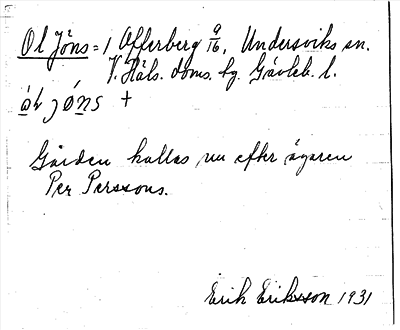 Ol Jöns = / Offerberg 9/16, Undersviks sn.
V. Häls. doms. hg. Gävleb. l.
o̱l jȯns +
Gården kallas nu efter ägaren
Per Perssons.
Erik Eriksson 1931